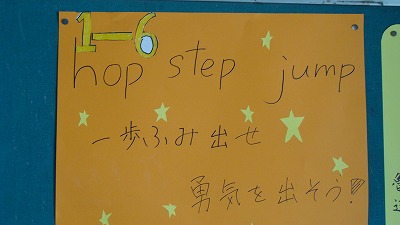 1-6
hop step jump
一歩ふみ出せ
勇気を出そう!